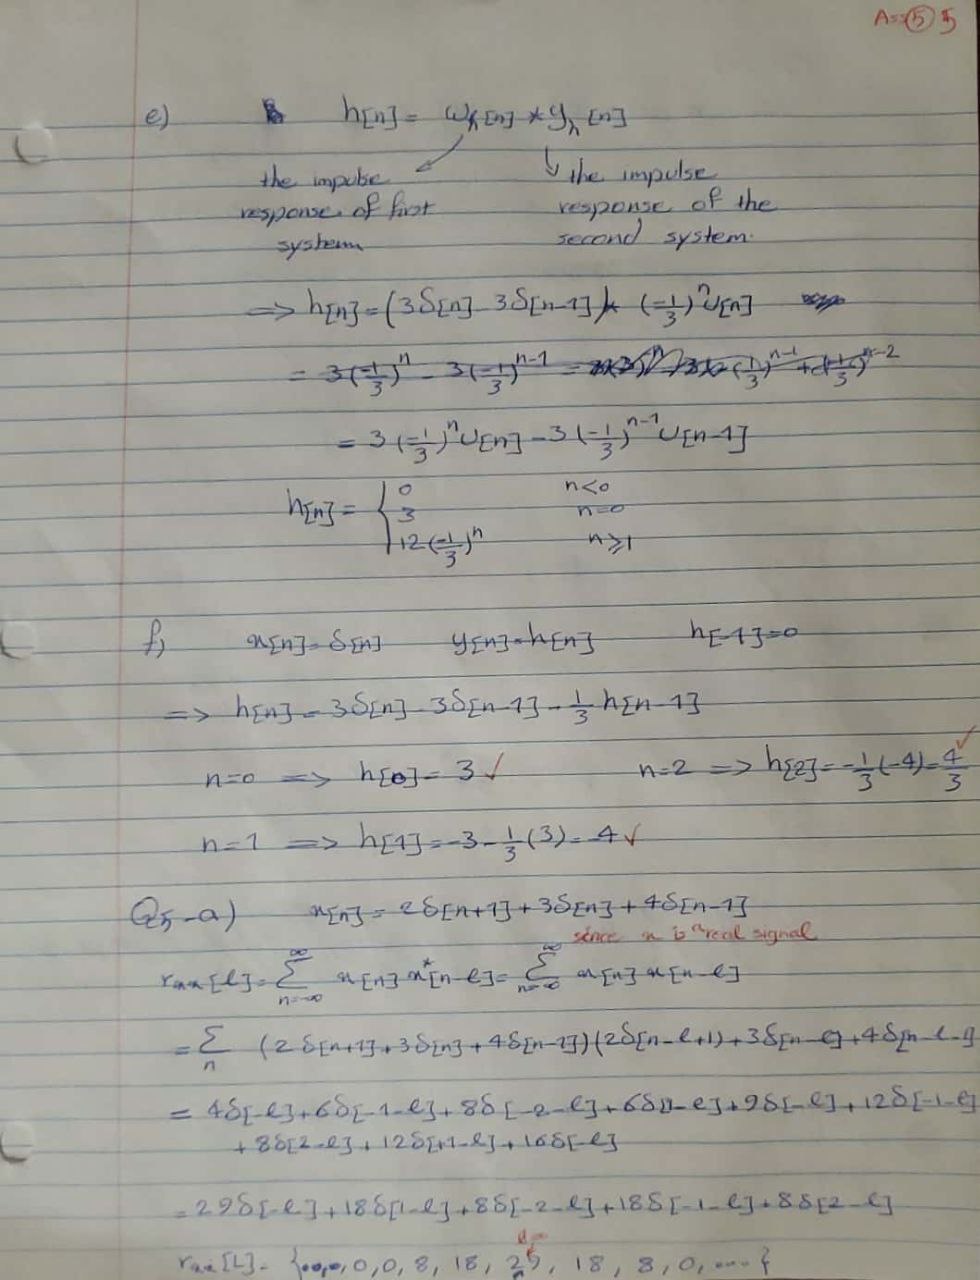 Ass 5 5
e) h[n] = ω_h[n] * y_h[n]
the impulse response of first system
the impulse response of the second system.
=> h[n] = (3δ[n] - 3δ[n-1]) * (-1/3)^n U[n]
= 3(-1/3)^n - 3(-1/3)^{n-1} =
= 3(-1/3)^n U[n] - 3(-1/3)^{n-1} U[n-1]
h[n] = { 0 n<0
3 n=0
12(-1/3)^n n≥1
f) x[n] = δ[n] y[n] = h[n] h[-1] = 0
=> h[n] = 3δ[n] - 3δ[n-1] - 1/3 h[n-1]
n=0 => h[0] = 3 ✓ n=2 => h[2] = -1/3(-4) = 4/3 ✓
n=1 => h[1] = -3 - 1/3(3) = -4 ✓
Q5-a) x[n] = 2δ[n+1] + 3δ[n] + 4δ[n-1]
since x is a real signal
r_xx[l] = Σ_{n=-∞}^{∞} x[n] x*[n-l] = Σ_{n=-∞}^{∞} x[n] x[n-l]
= Σ_n (2δ[n+1] + 3δ[n] + 4δ[n-1])(2δ[n-l+1) + 3δ[n-l] + 4δ[n-l-1]
= 4δ[-l] + 6δ[-1-l] + 8δ[-2-l] + 6δ[1-l] + 9δ[-l] + 12δ[-1-l]
+ 8δ[2-l] + 12δ[+1-l] + 16δ[-l]
= 29δ[-l] + 18δ[1-l] + 8δ[-2-l] + 18δ[-1-l] + 8δ[2-l]
r_xx[L] = {..., 0, 0, 8, 18, 29, 18, 8, 0, ... }